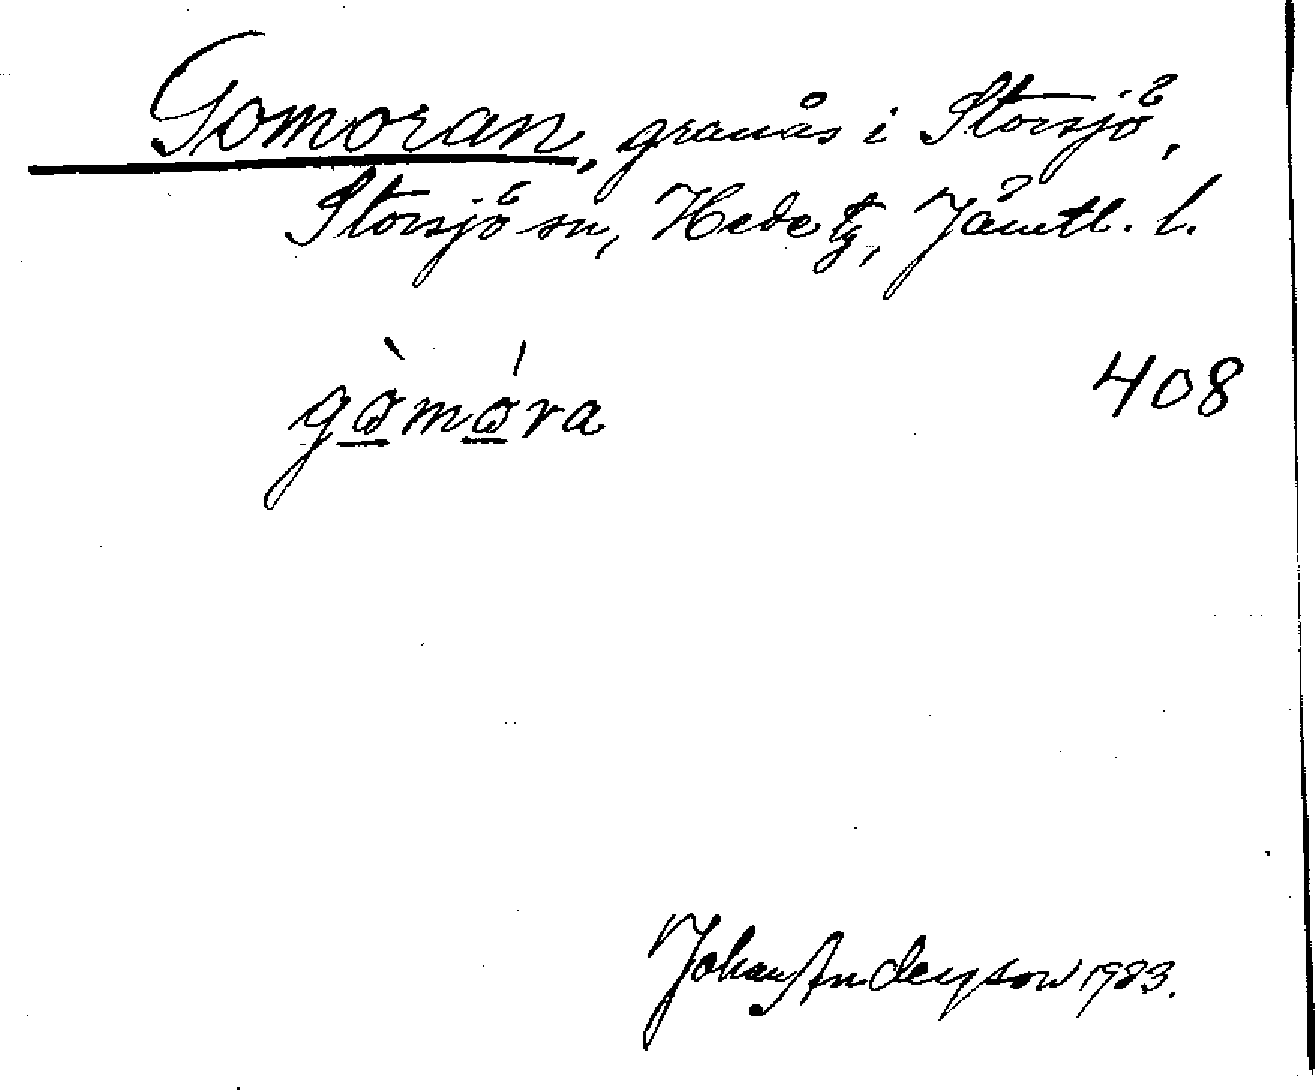 Gomoran, granås i Storsjö,
Storsjö sn, Hede tg, Jämtl. l.
gòmóra
408
Johan Anderson 1983.